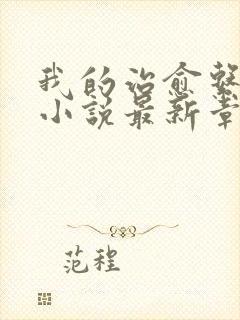 我的治愈系
小说最新章
范程